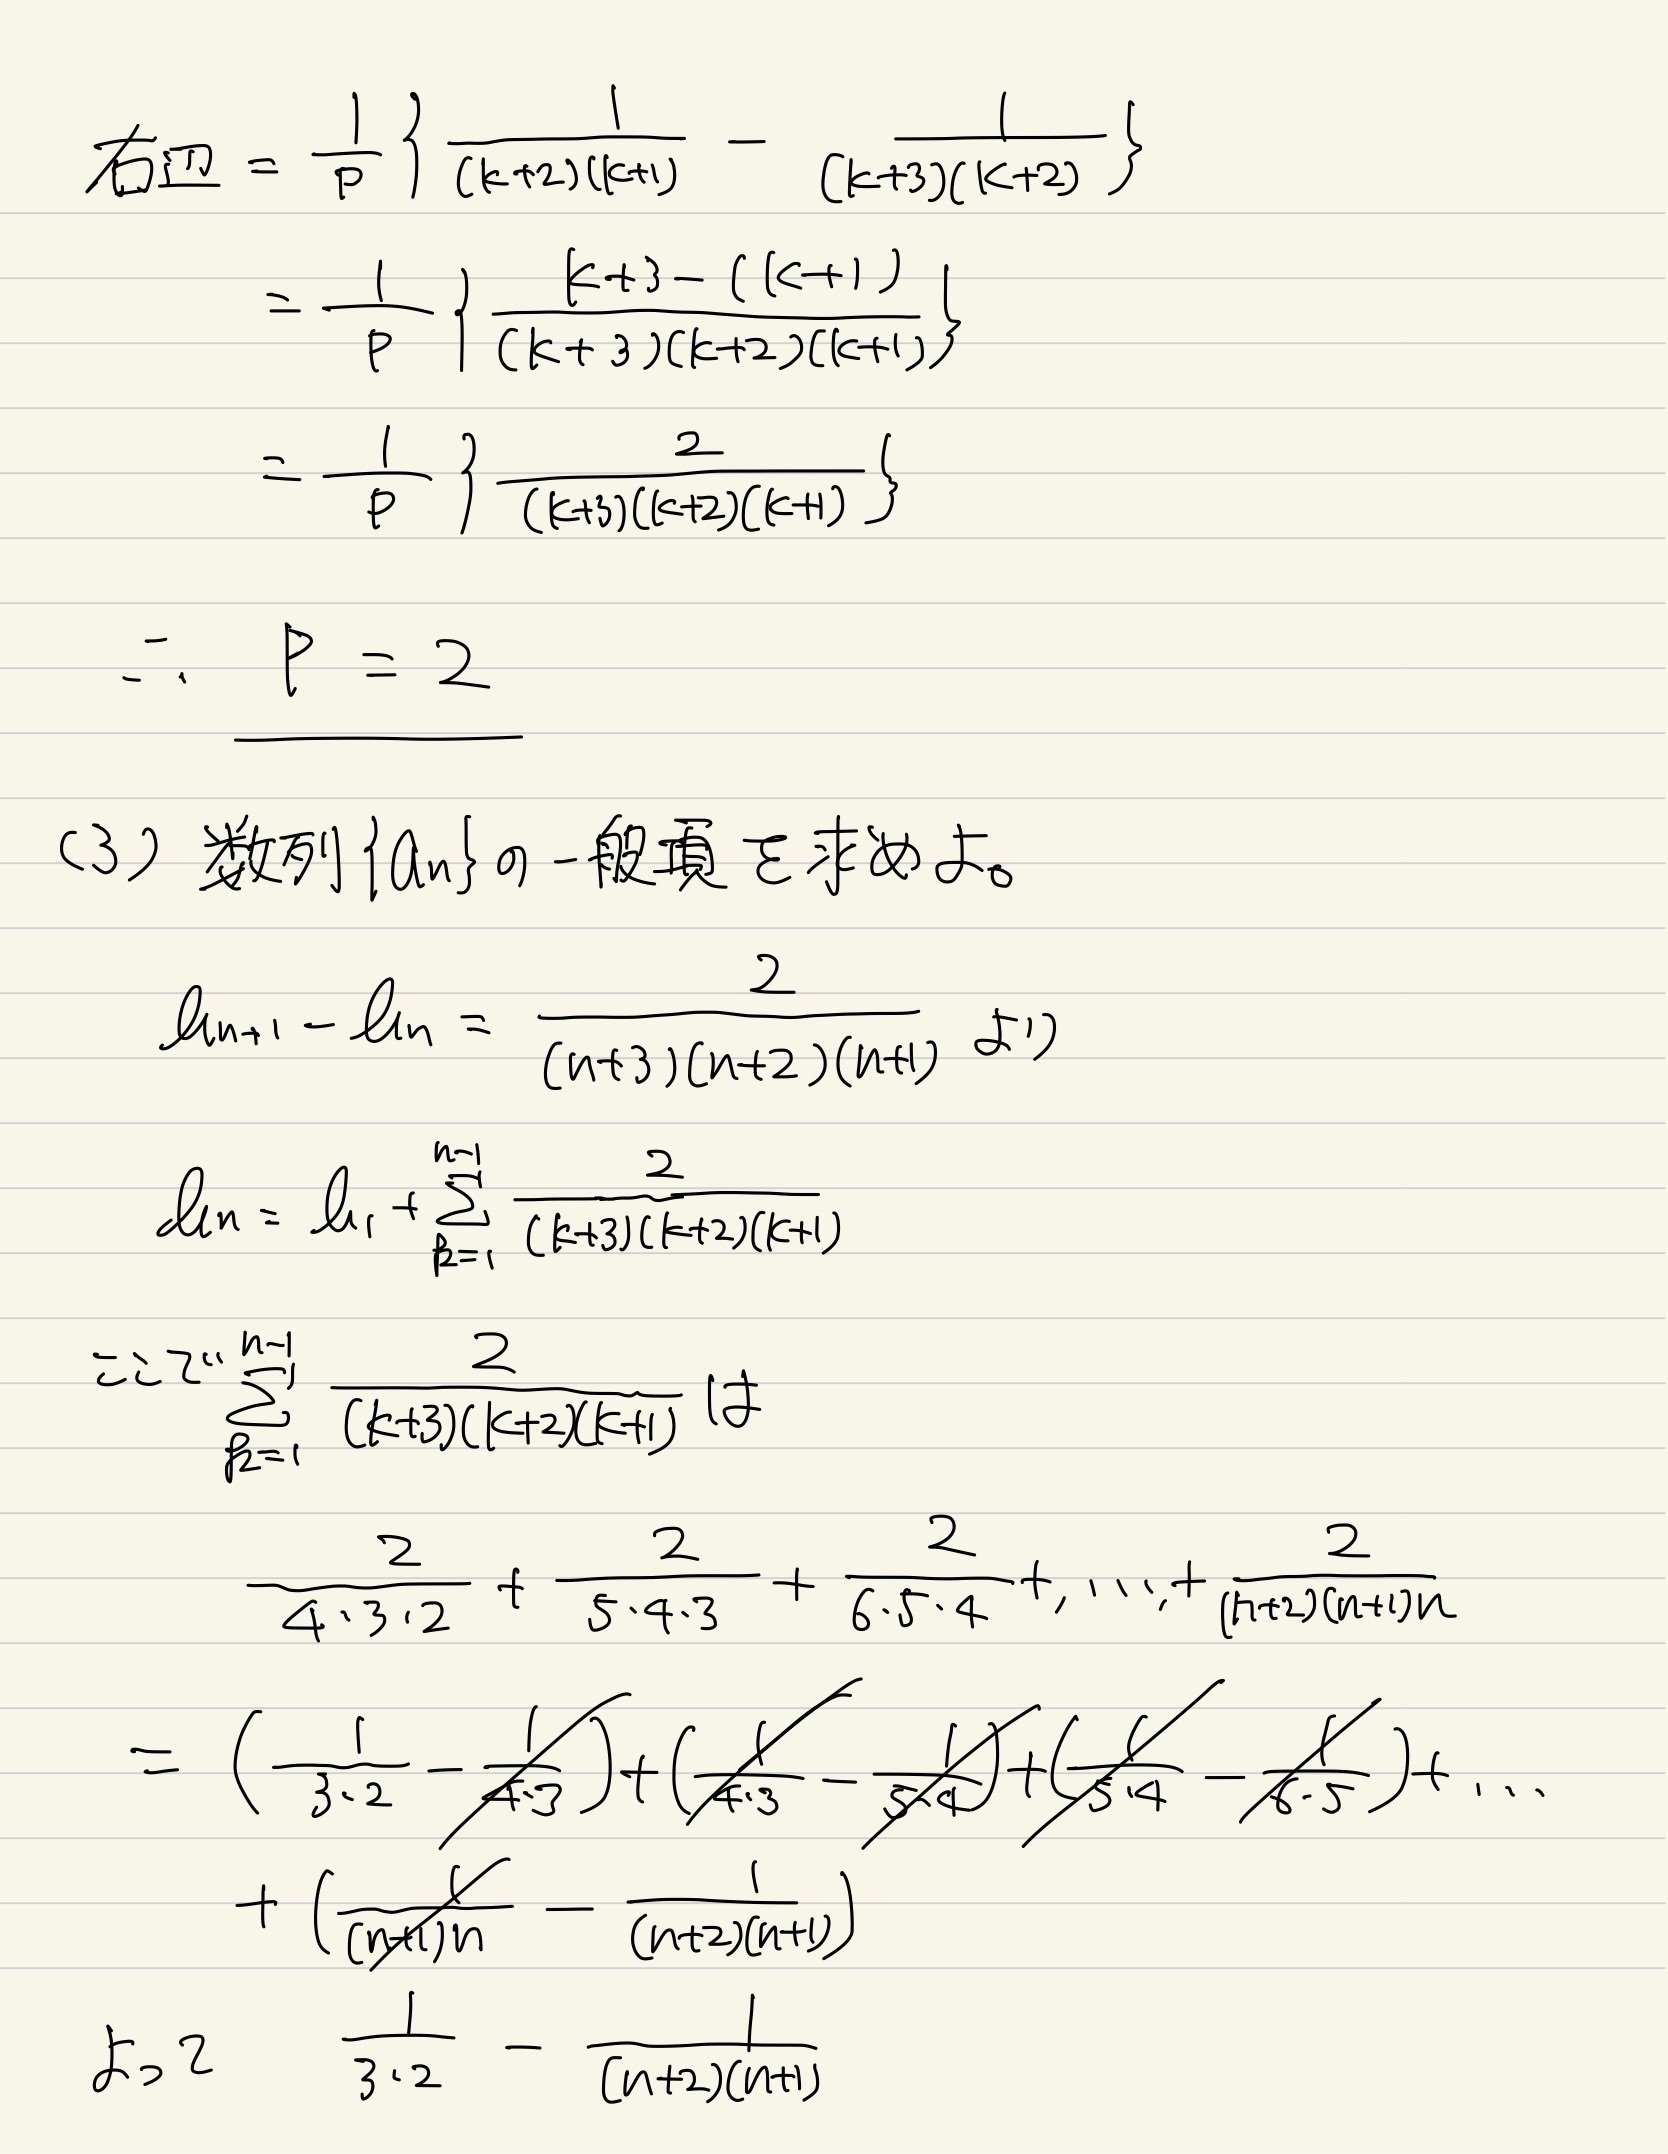 右辺 = 1/P { 1/((k+2)(k+1)) - 1/((k+3)(k+2)) }
= 1/P { (k+3-(k+1))/((k+3)(k+2)(k+1)) }
= 1/P { 2/((k+3)(k+2)(k+1)) }
∴ P = 2
(3) 数列{an}の一般項を求めよ。
bn+1 - bn = 2/((n+3)(n+2)(n+1)) より
bn = b1 + Σ[k=1→n-1] 2/((k+3)(k+2)(k+1))
ここで Σ[k=1→n-1] 2/((k+3)(k+2)(k+1)) は
2/(4·3·2) + 2/(5·4·3) + 2/(6·5·4) +, ..., + 2/((n+2)(n+1)n)
= (1/(3·2) - 1/(4·3)) + (1/(4·3) - 1/(5·4)) + (1/(5·4) - 1/(6·5)) + ...
+ (1/((n+1)n) - 1/((n+2)(n+1)))
よって 1/(3·2) - 1/((n+2)(n+1))